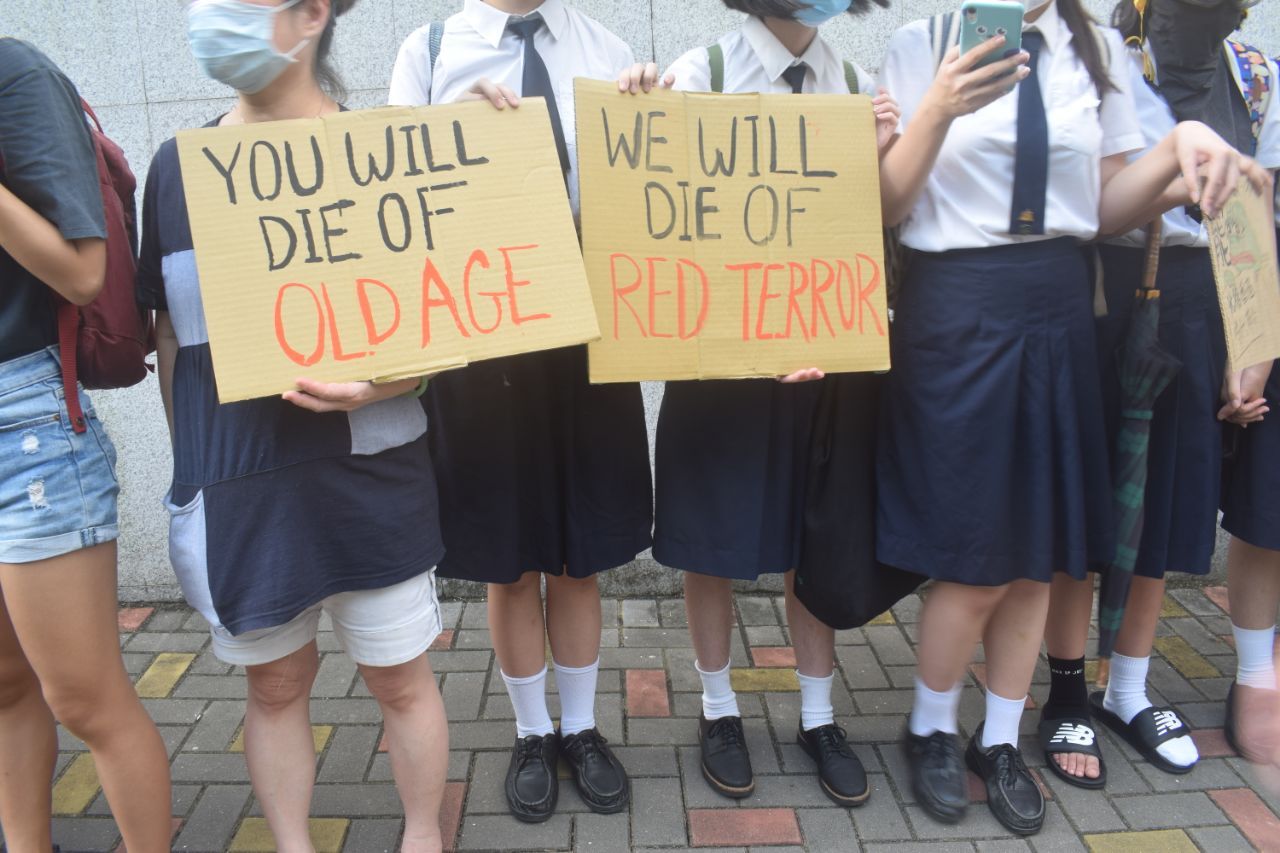 YOU WILL
DIE OF
OLD AGE
WE WILL
DIE OF
RED TERROR
NB
NB